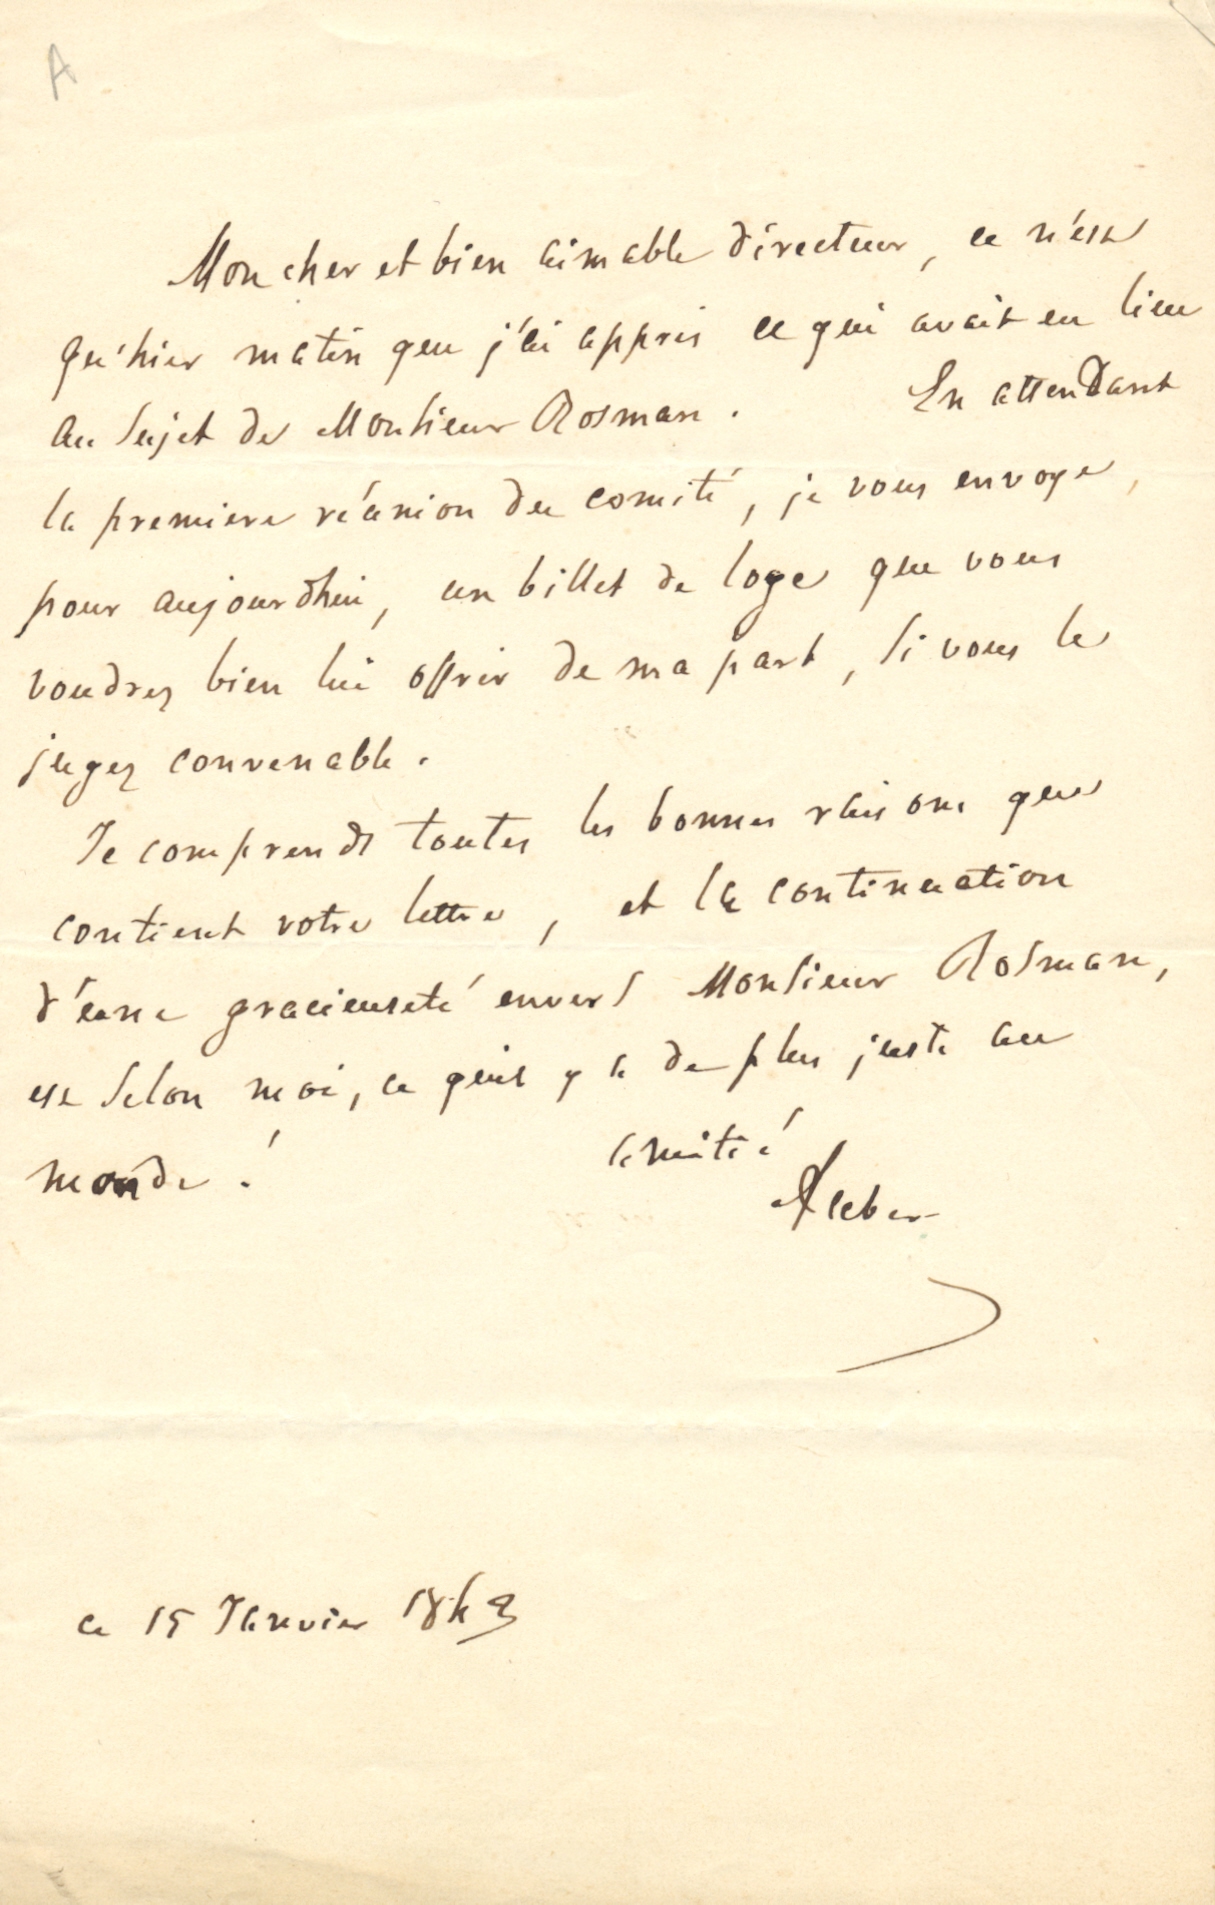 A
Mon cher et bien aimable directeur, ce n'est
qu'hier matin que j'ai appris ce qui avait eu lieu
au sujet de Monsieur Rosman. En attendant
la premiere réunion du comité, je vous envoye,
pour aujourdhui, un billet de loge que vous
voudrez bien lui offrir de ma part, si vous le
jugez convenable.
Je comprends toutes les bonnes raisons que
contient votre lettre, et la continuation
d'une gracieuseté envers Monsieur Rosman,
est selon moi, ce qu'il y a de plus juste au
monde !
amitié
ce 15 Janvier